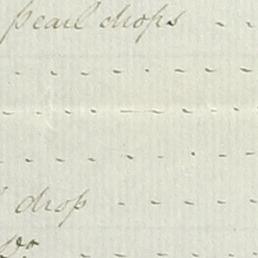 pearl drops - -
- - - - - - - -
- - - - - - - -
- - - - - - - -
drop - - - - -
Do - - - - - -